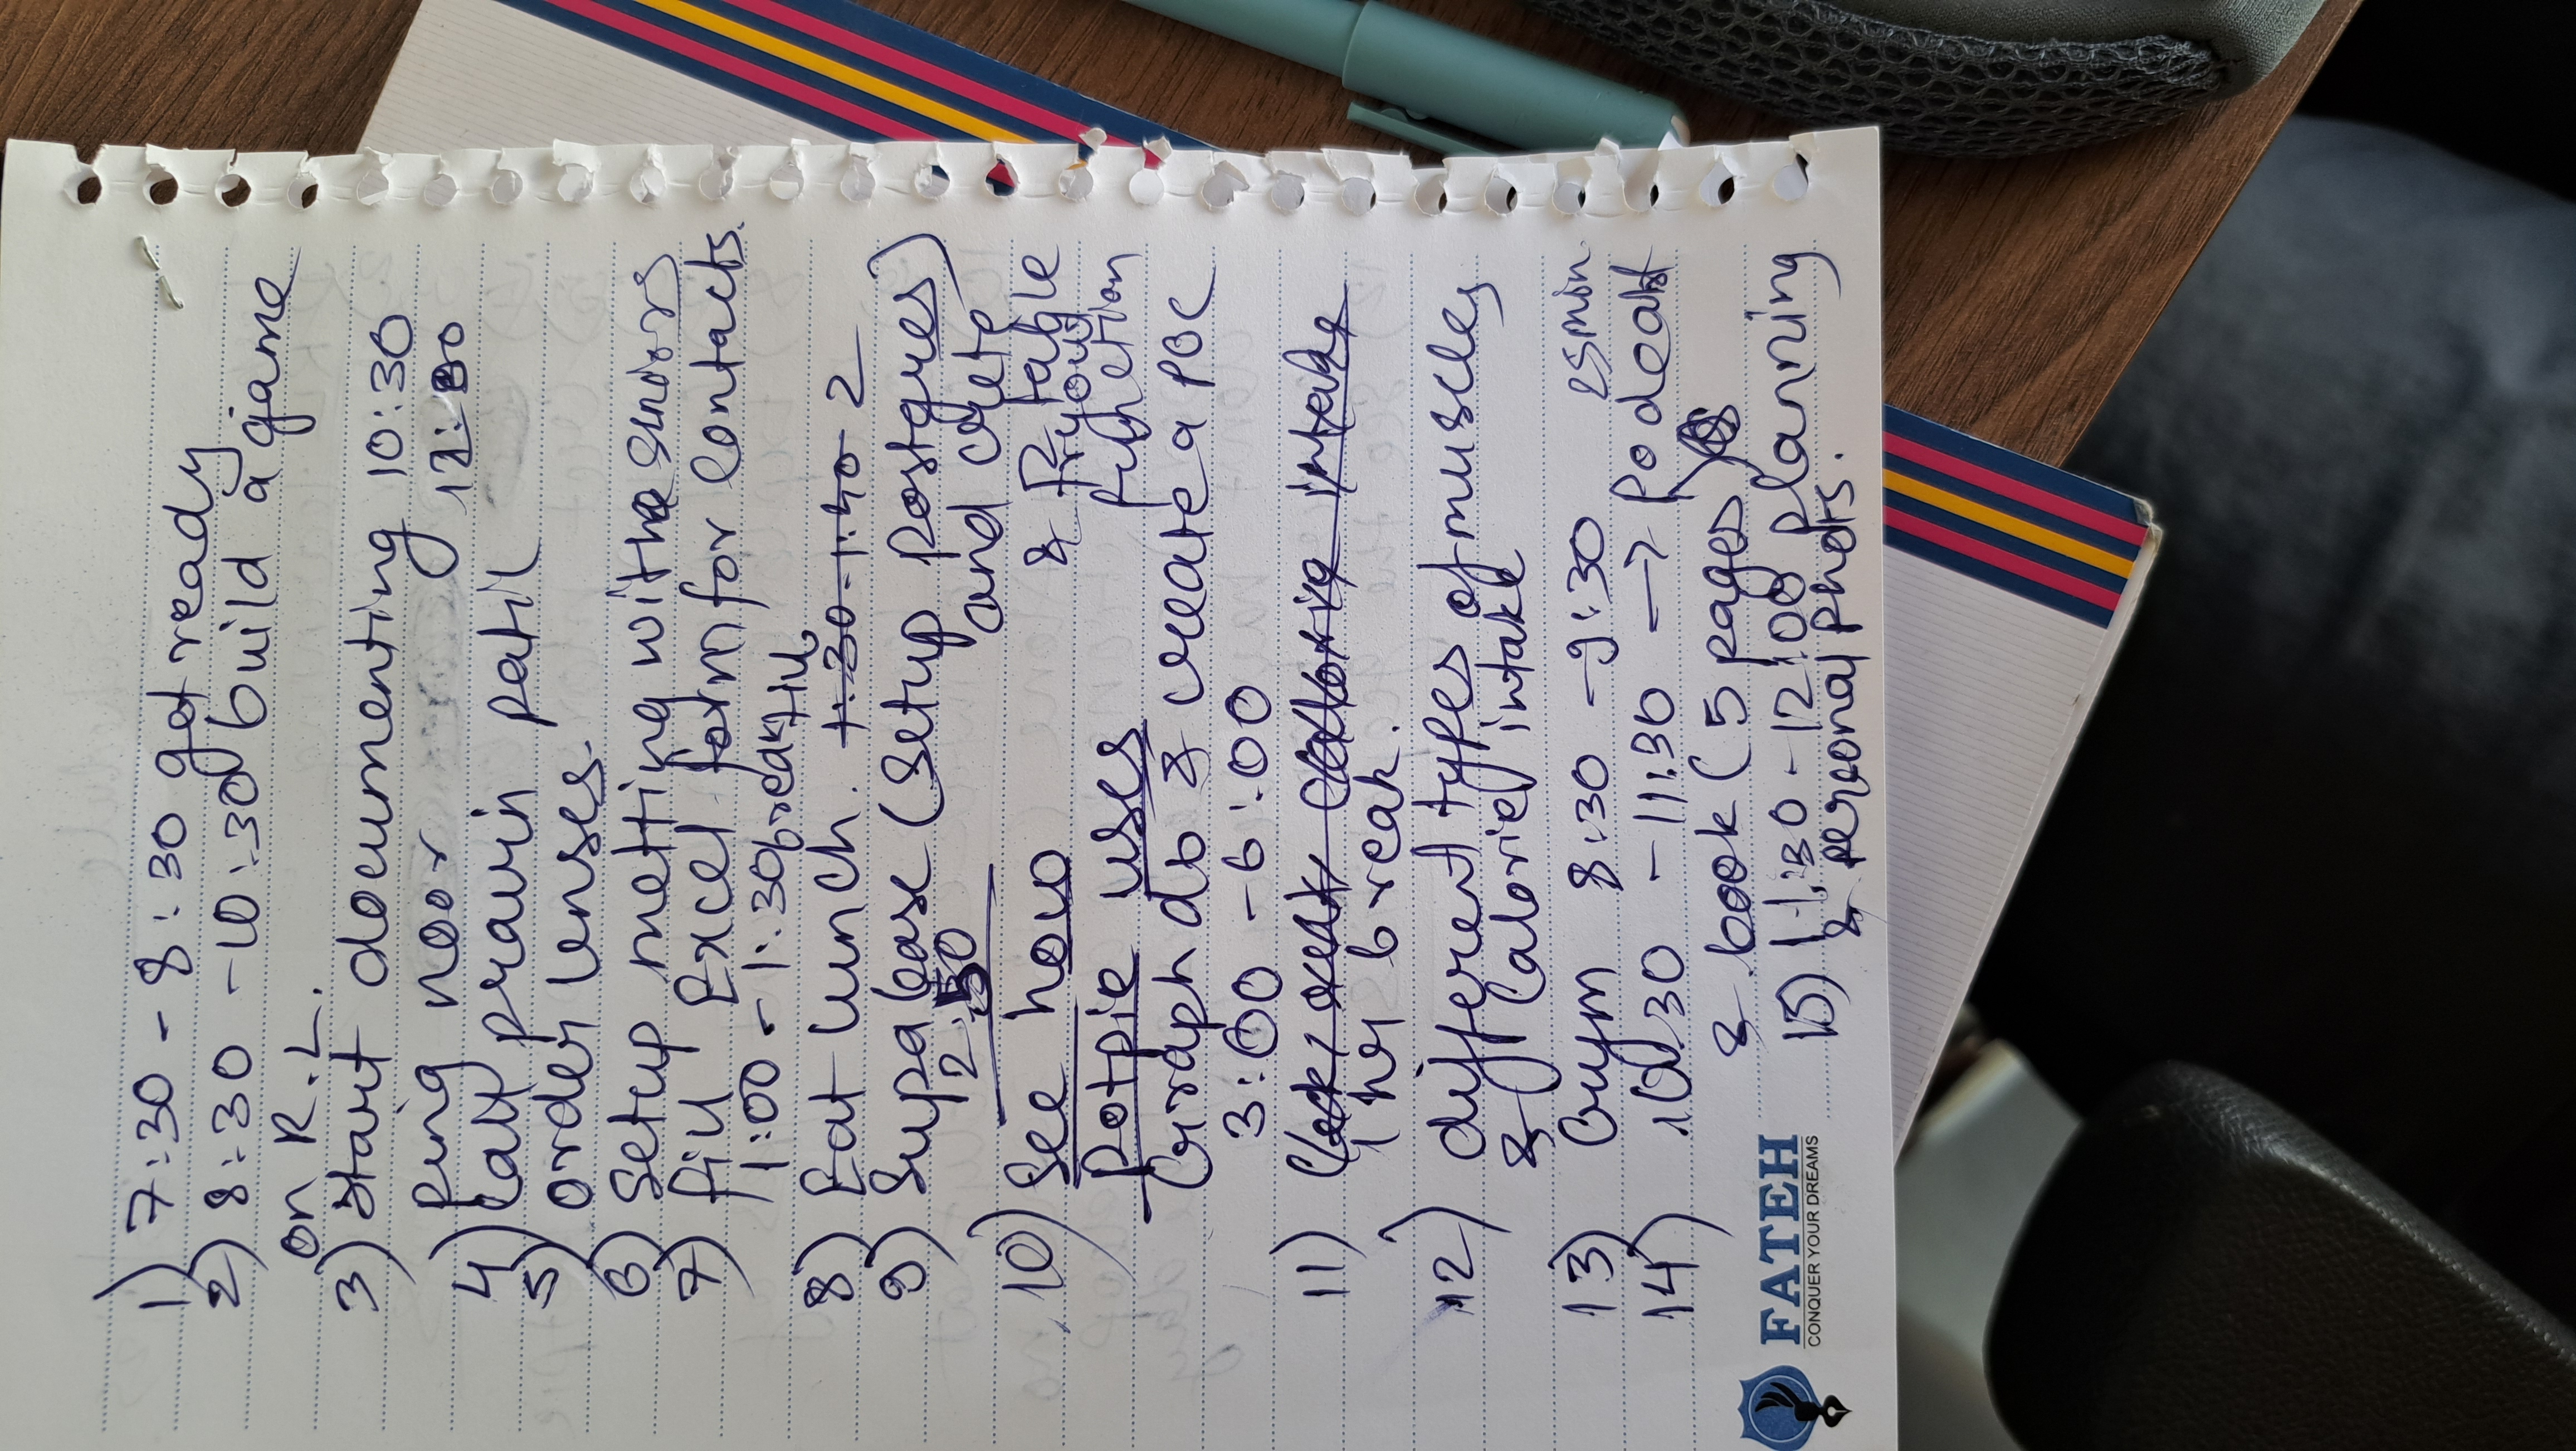 1) 7:30 - 8:30 get ready
2) 8:30 - 10:30 build a game
on R.L.
3) Start documenting 10:30
ping noor
4) Call pravin patil
5) order lenses.
6) Setup metting with seniors
7) fill Excel form for contacts.
1:00 - 1:30 break
8) Eat lunch. 1:30-1:40 2
9) Supabase (Setup postgres)
2:50 and crete
10) See how & 2 table
tryout
potpie uses function
Graph db & create a POC
3:00 - 6:00
11) calorie intake
1 hr break.
12) different types of muscles
& Calorie intake
13) Gym 8:30 - 9:30 25min
14) 10:30 - 11:30 → Podcast
& book (5 pages)
FATEH
CONQUER YOUR DREAMS
15) 11:30 - 12:00 planning
& personal Phots.